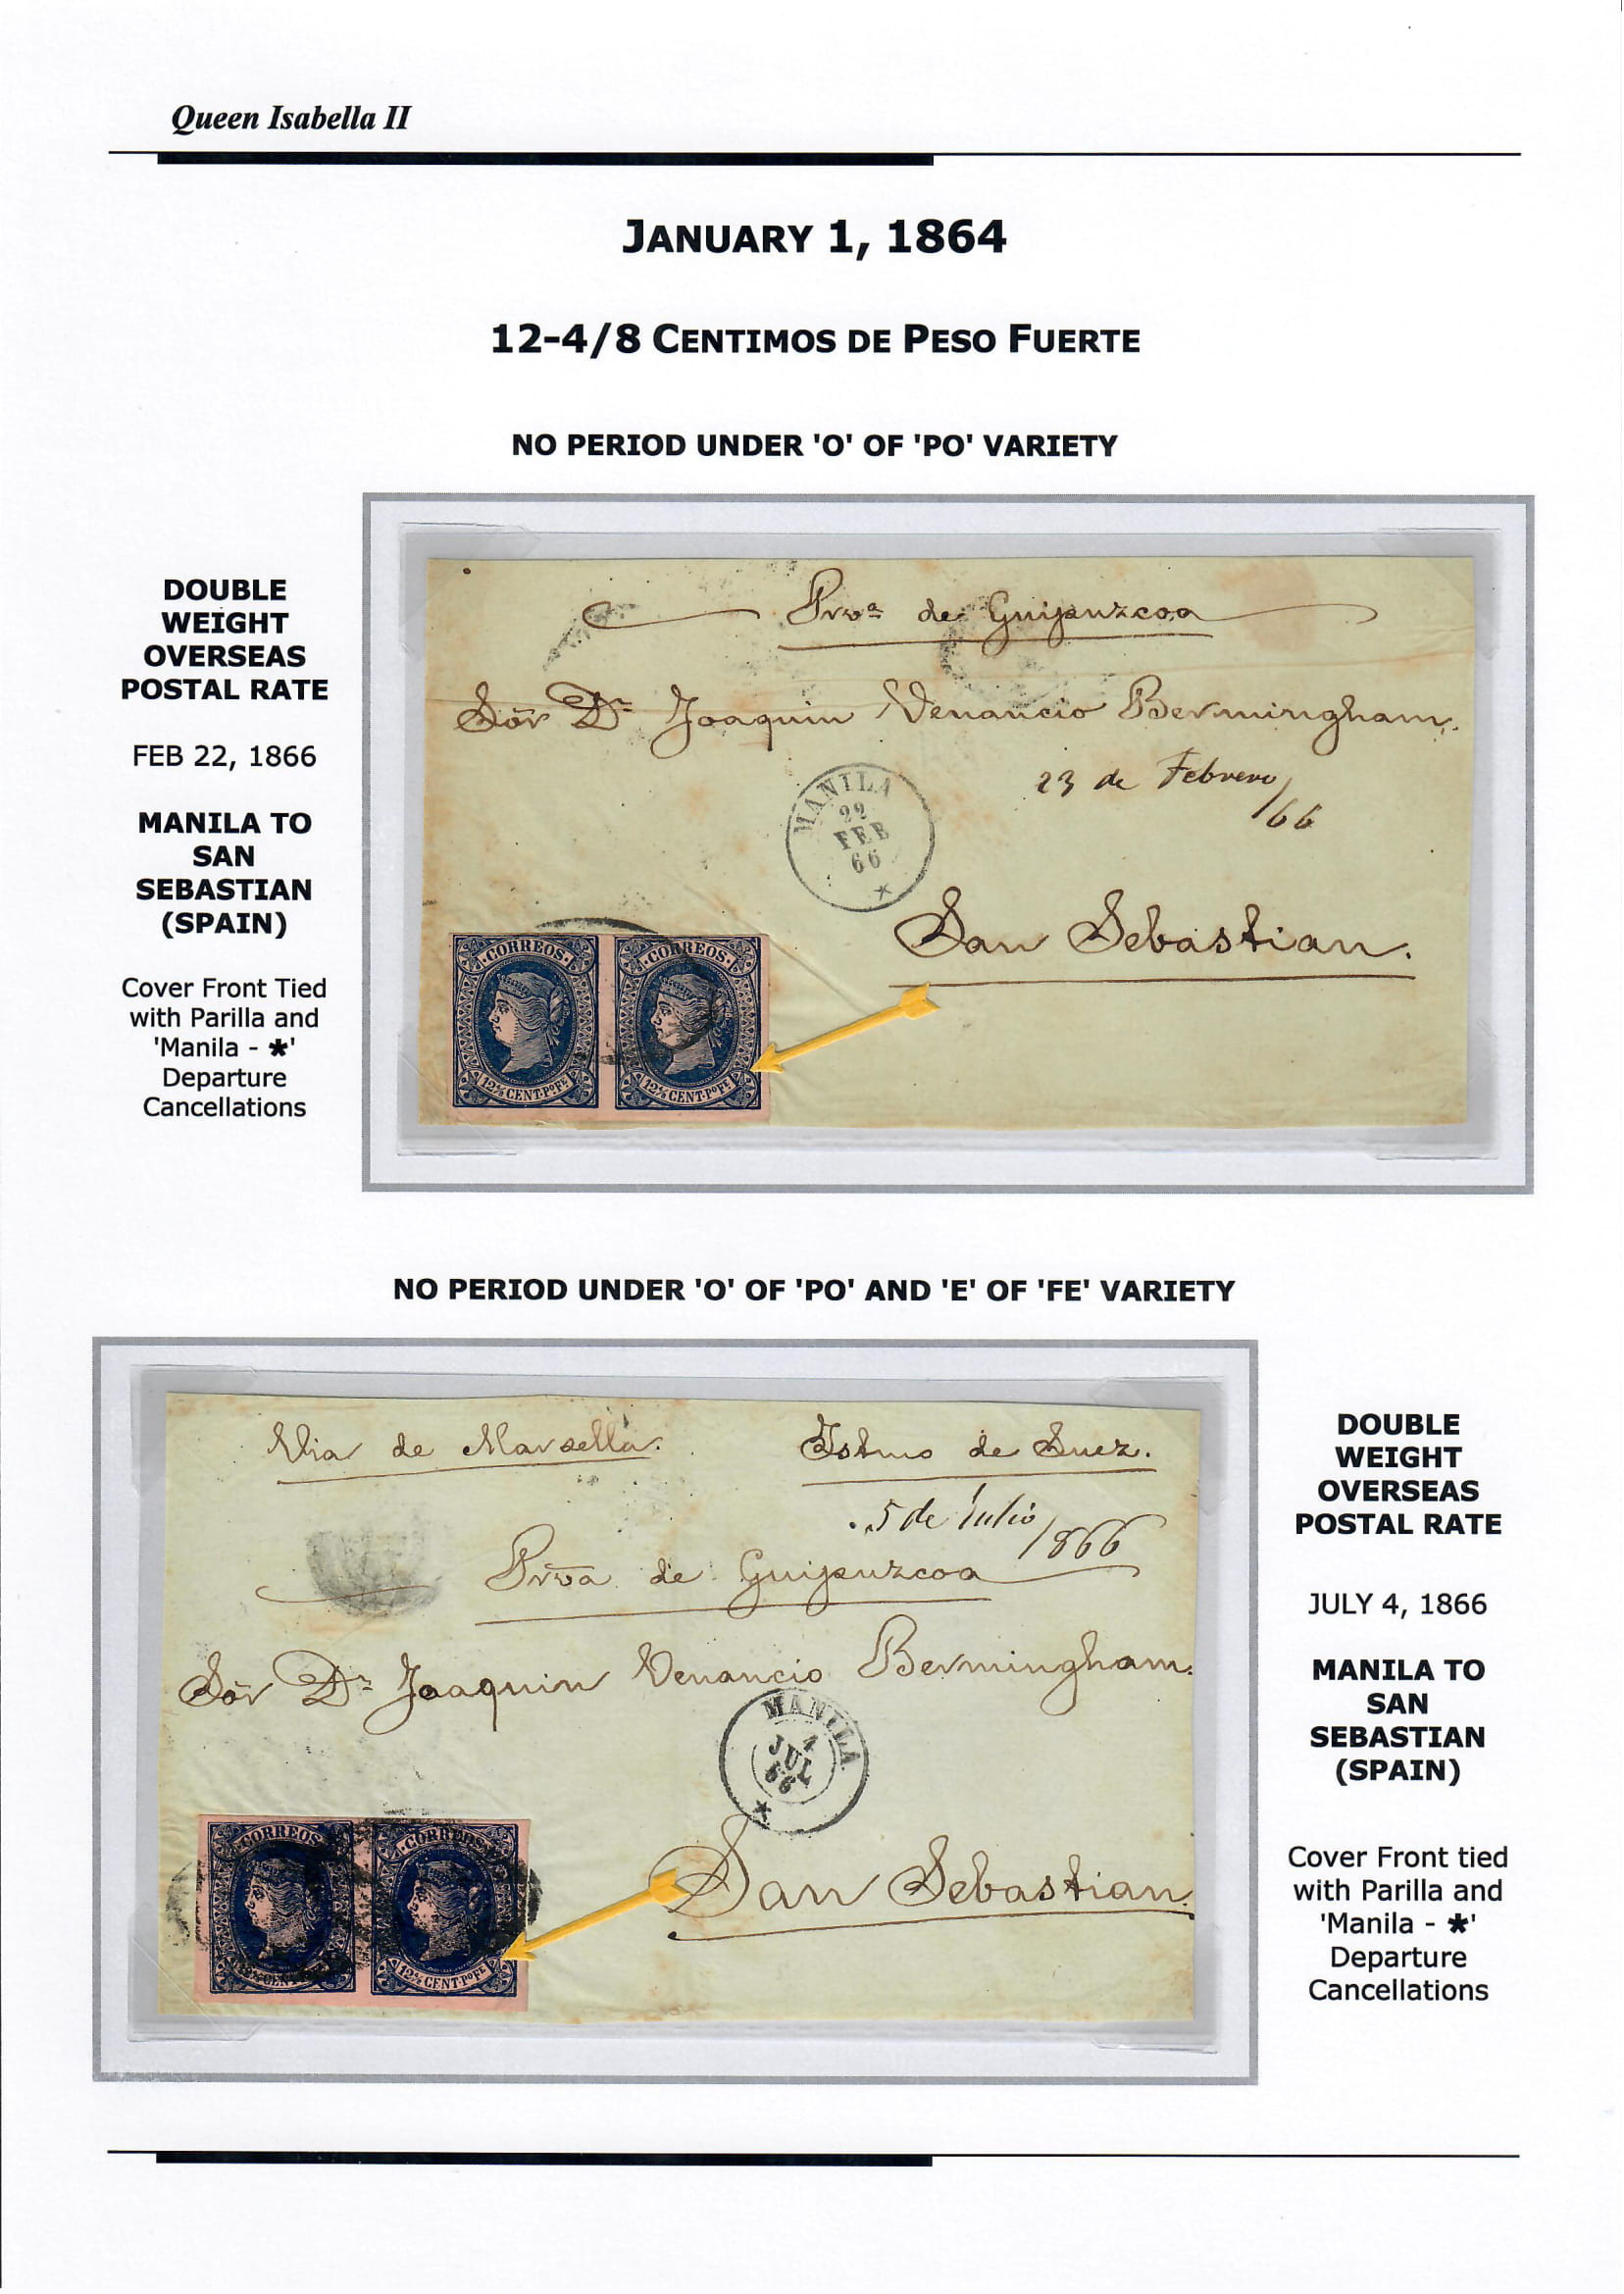 Queen Isabella II
JANUARY 1, 1864
12-4/8 CENTIMOS DE PESO FUERTE
NO PERIOD UNDER 'O' OF 'PO' VARIETY
DOUBLE
WEIGHT
OVERSEAS
POSTAL RATE
FEB 22, 1866
MANILA TO
SAN
SEBASTIAN
(SPAIN)
Cover Front Tied
with Parilla and
'Manila - *'
Departure
Cancellations
Prvª de Guipuzcoa
Sōr Dn Joaquin Venancio Bermingham.
23 de Febrero/66
MANILA
22
FEB
66
*
San Sebastian.
·CORREOS·
12 4/8 CENT. Po Fe
·CORREOS·
12 4/8 CENT. Po Fe
NO PERIOD UNDER 'O' OF 'PO' AND 'E' OF 'FE' VARIETY
Via de Marsella.
Istmo de Suez.
5 de Julio/1866
Prvā de Guipuzcoa
Sōr Dn Joaquin Venancio Bermingham.
MANILA
4
JUL
66
*
San Sebastian.
CORREOS
·CORREOS·
12 4/8 CENT. Po Fe
DOUBLE
WEIGHT
OVERSEAS
POSTAL RATE
JULY 4, 1866
MANILA TO
SAN
SEBASTIAN
(SPAIN)
Cover Front tied
with Parilla and
'Manila - *'
Departure
Cancellations